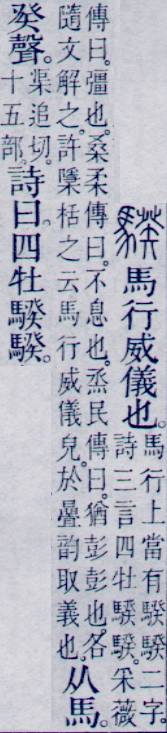 騤 馬行威儀也。馬行上當有騤騤二字。
詩三言四牡騤騤。采薇
傳曰。彊也。桑柔傳曰。不息也。烝民傳曰。猶彭彭也。各
隨文解之。許檃栝之云馬行威儀皃。於曡韵取義也。从馬。
癸聲。渠追切。
十五部。詩曰。四牡騤騤。